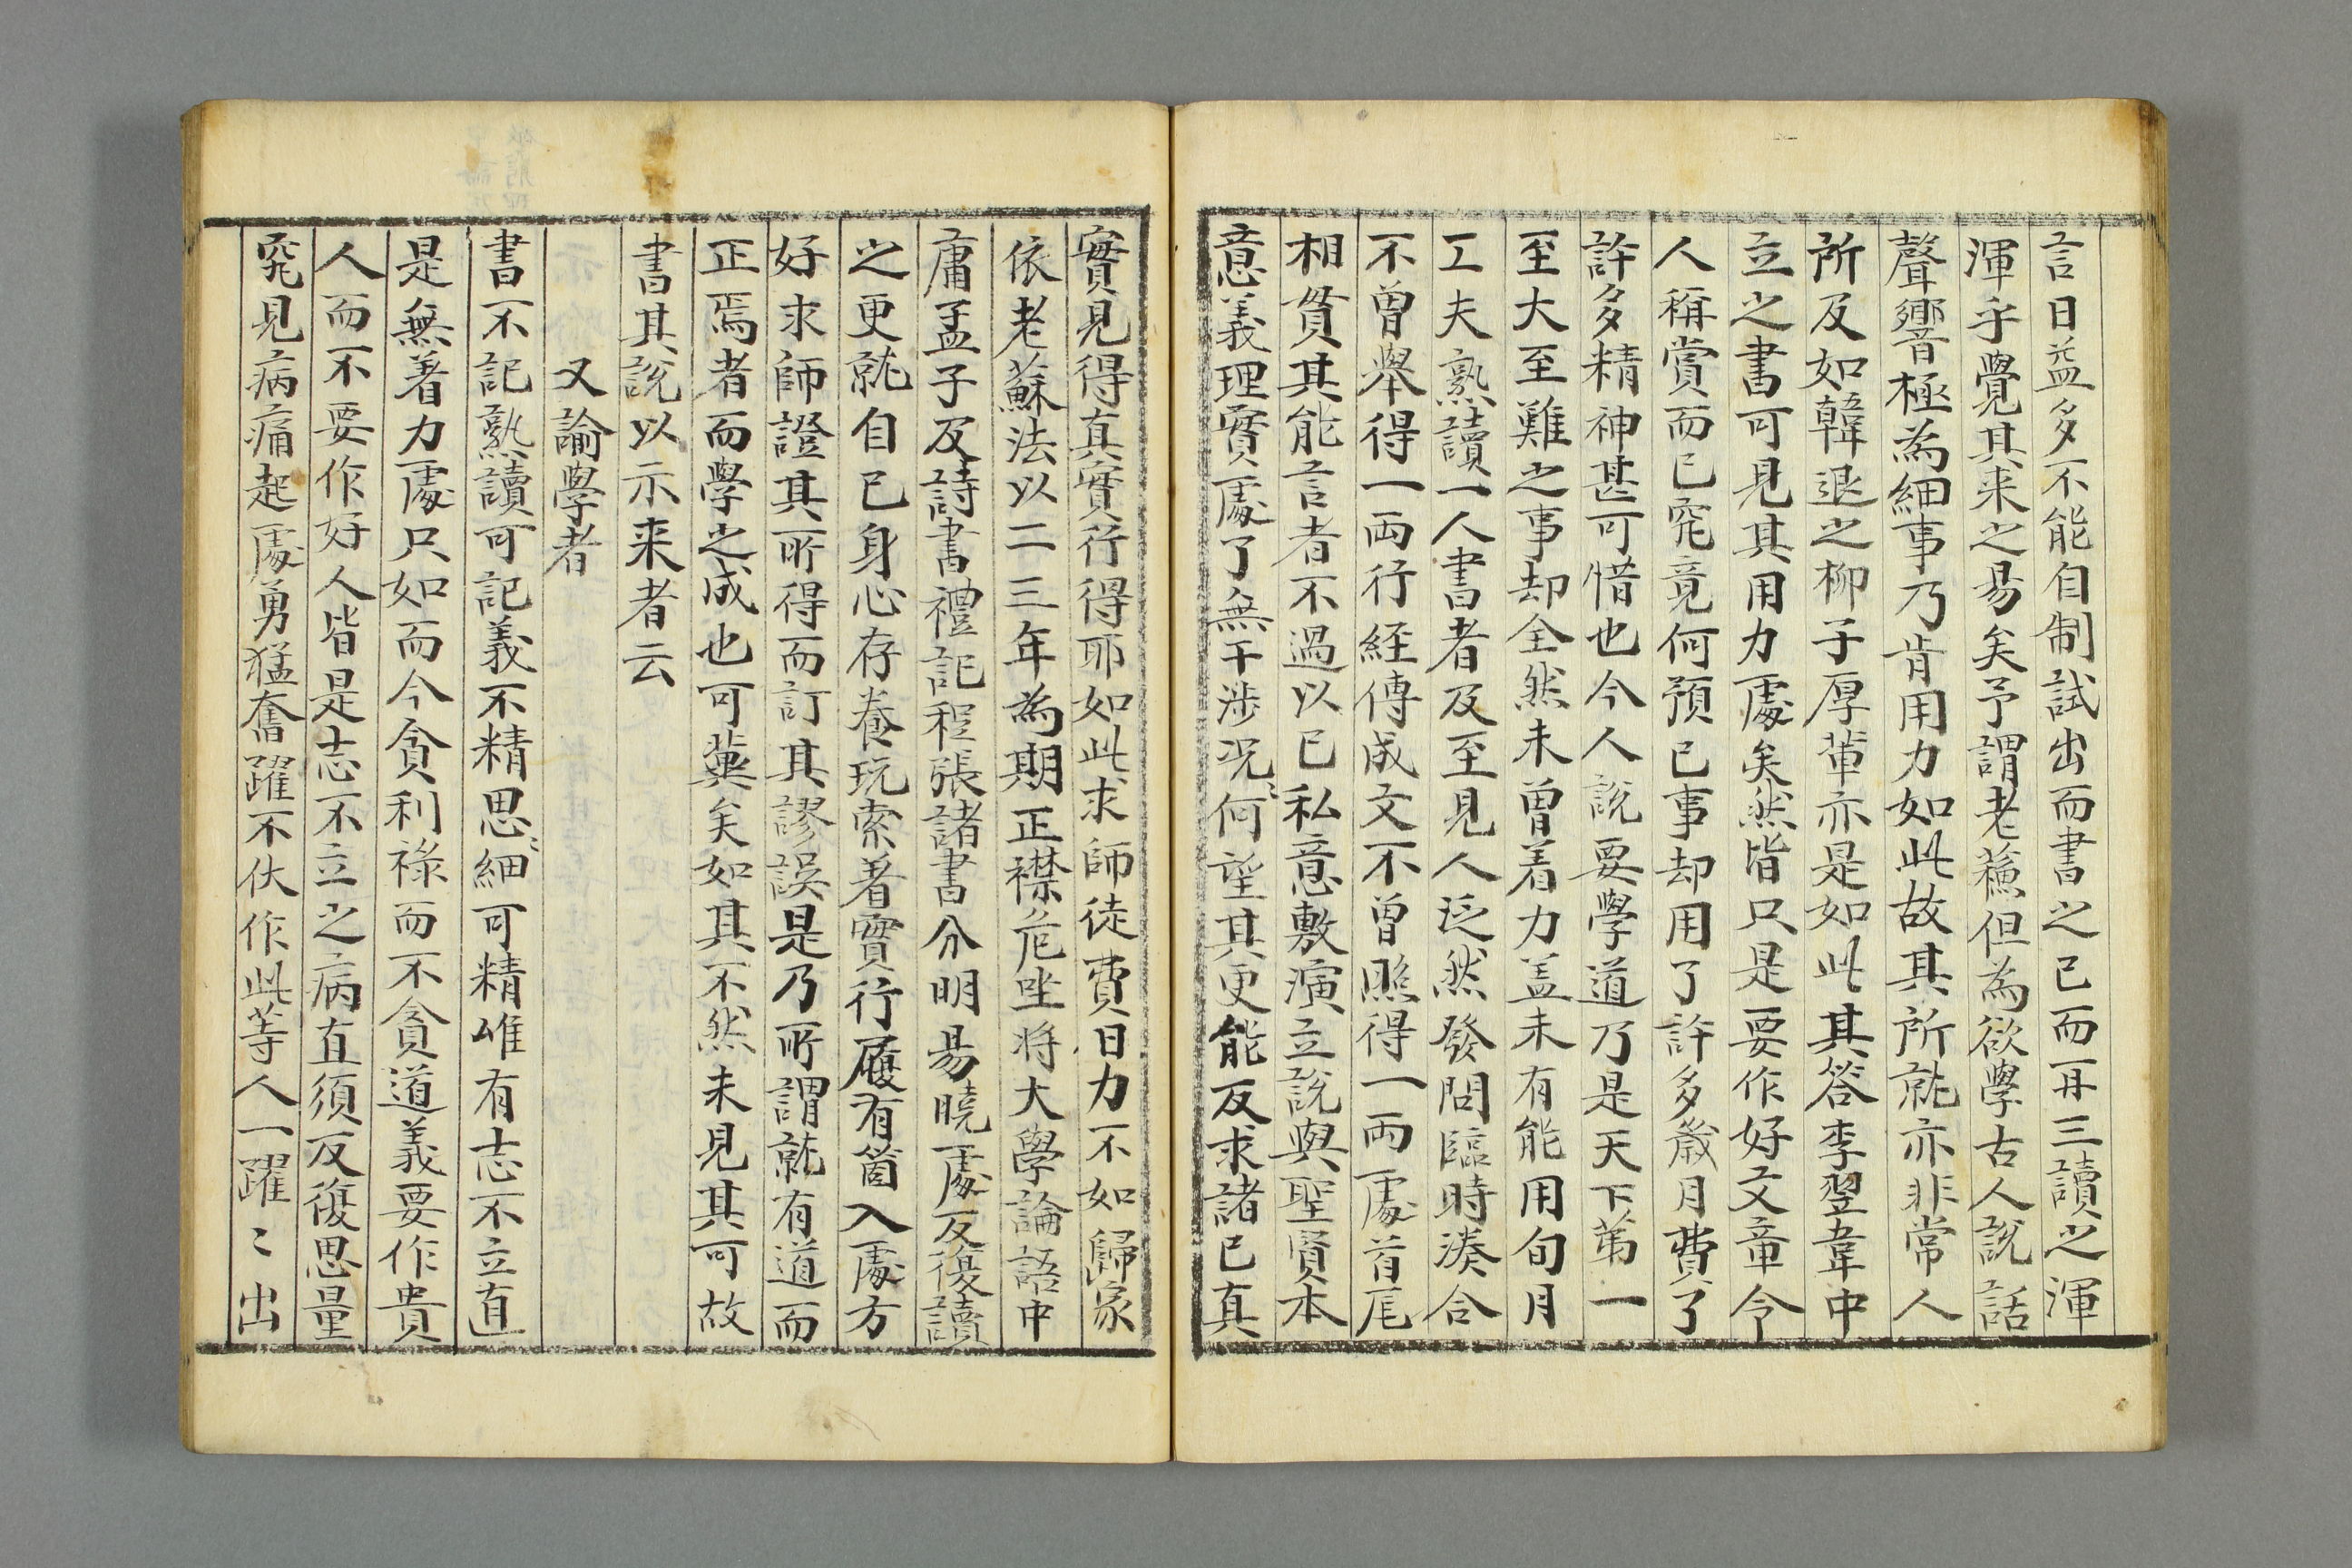 言日益多不能自制試出而書之已而再三讀之渾
渾乎覺其来之易矣予謂老蘓但為欲學古人說話
聲響極為細事乃肯用力如此故其所就亦非常人
所及如韓退之柳子厚輩亦是如此其答李翌韋中
立之書可見其用力處矣然皆只是要作好文章令
人稱賞而已究竟何預已事却用了許多歲月費了
許多精神甚可惜也今人說要學道乃是天下第一
至大至難之事却全然未曾着力盖未有能用旬月
工夫熟讀一人書者及至見人泛然發問臨時湊合
不曾舉得一兩行經傳成文不曾照得一兩處首尾
相貫其能言者不過以已私意敷演立說與聖賢本
意義理實處了無干涉况何望其更能反求諸已真
實見得真實行得耶如此求師徒費日力不如歸家
依老蘇法以二三年為期正襟危坐將大學論語中
庸孟子及詩書禮記程張諸書分明易曉處反復讀
之更就自已身心存養玩索著實行履有箇入處方
好求師證其所得而訂其謬誤是乃所謂就有道而
正焉者而學之成也可冀矣如其不然未見其可故
書其說以示来者云
又諭學者
書不記熟讀可記義不精思細可精唯有志不立直
是無著力處只如而今貪利祿而不貪道義要作貴
人而不要作好人皆是志不立之病直須反復思量
究見病痛起處勇猛奮躍不伏作此等人一躍〻出